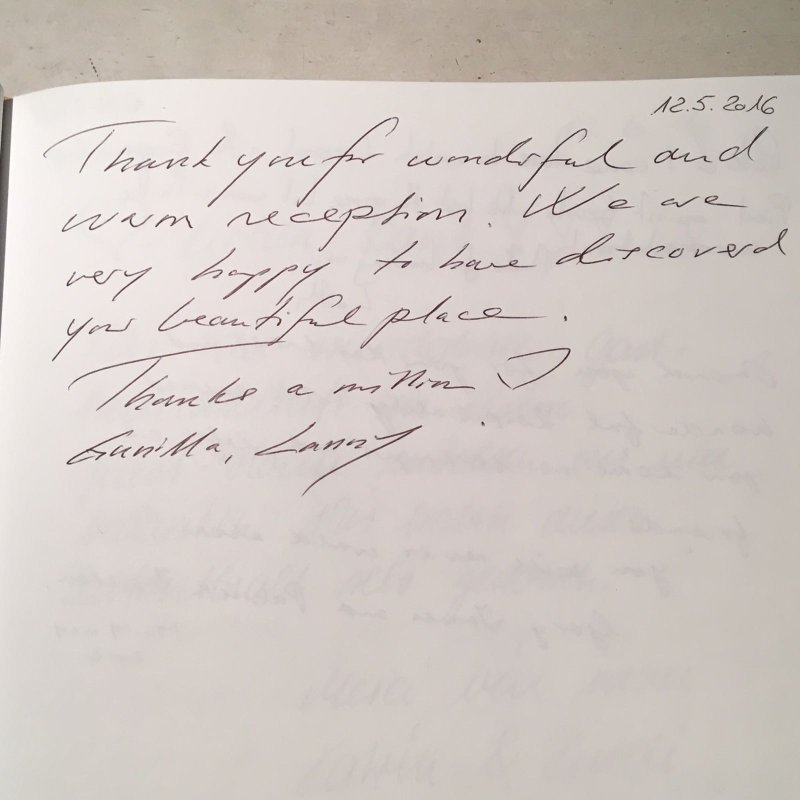 12.5.2016
Thank you for wonderful and
warm reception. We are
very happy to have discoverd
your beautiful place.
Thanks a million
Gunilla, Lanny